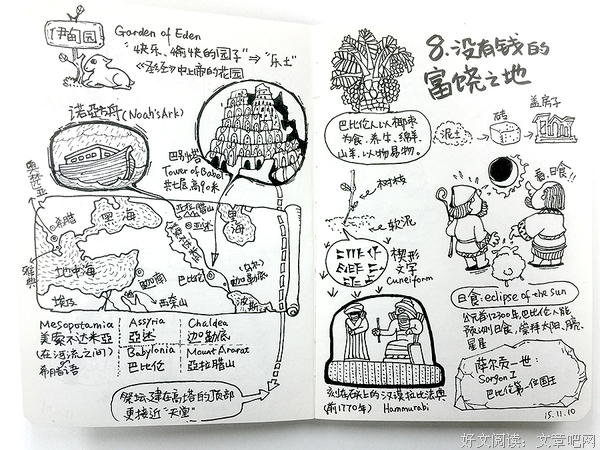 伊甸园
Garden of Eden
"快乐、愉快的园子"⇒"乐土"
《圣经》中上帝的花园
诺亚方舟(Noah's Ark)
巴别塔
Tower of Babel
共七层,高90米
奥林匹亚
雅典
希腊
黑海
地中海
埃及
亚拉腊山
亚述
迦南
西奈山
巴比伦
黑海
迦勒底
波斯
Mesopotamia
美索不达米亚
(在河流之间)
希腊语
Assyria
亚述
Babylonia
巴比伦
Chaldea
迦勒底
Mount Ararat
亚拉腊山
祭坛,建在高塔的顶部
更接近"天堂"
8.没有钱的
富饶之地
巴比伦人以椰枣
为食,养牛、绵羊、
山羊,以物易物。
泥土
砖
盖房子
树枝
软泥
楔形
文字
Cuneiform
看,日食!!
日食:eclipse of the Sun
公元前2300年,巴比伦人能
预测日食,崇拜太阳、月亮、
星星
刻在石头上的汉谟拉比法典
(前1770年) Hammurabi
萨尔贡一世:
Sargon I
巴比伦第一位国王
15.11.10
好文阅读:文章吧网